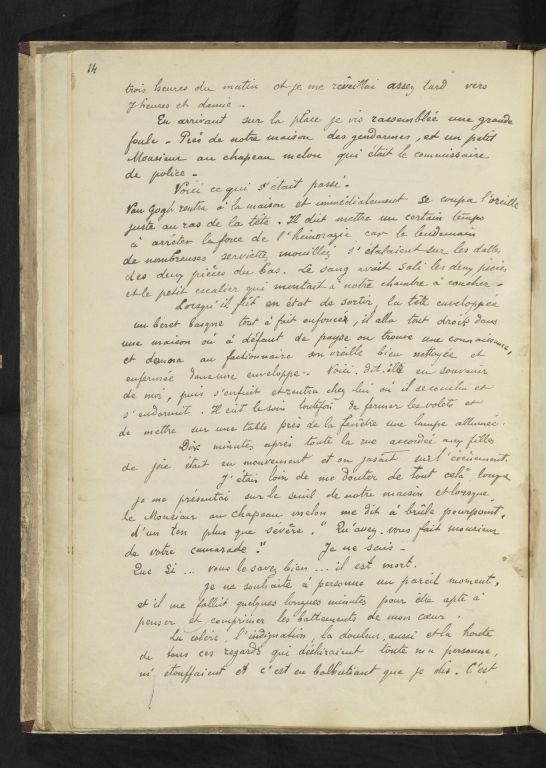 14
trois heures du matin et je me réveillai assez tard vers
7 heures et demie.
En arrivant sur la place je vis rassemblée une grande
foule. Près de notre maison des gendarmes, et un petit
Monsieur au chapeau melon qui était le commissaire
de police.
Voici ce qui s'était passé.
Van Gogh rentra à la maison et immédiatement se coupa l'oreille
juste au ras de la tête. Il dût mettre un certain temps
à arrêter la force de l'hémoragie car le lendemain
de nombreuses serviettes mouillées s'étalaient sur les dalles
des deux pièces du bas. Le sang avait sali les deux pièces
et le petit escalier qui montait à notre chambre à coucher.
Lorsqu'il fût en état de sortir, la tête enveloppée
un béret basque tout à fait enfoncé, il alla tout droit dans
une maison où à défaut de payse on trouve une connaissance,
et donna au factionnaire son oreille bien nettoyée et
enfermée dans une enveloppe. Voici, dit-il en souvenir
de moi, puis s'enfuit et rentra chez lui où il se coucha et
s'endormit. Il eut le soin toutefois de fermer les volets et
de mettre sur une table près de la fenêtre une lampe allumée.
Dix minutes après toute la rue accordée aux filles
de joie était en mouvement et on jasait sur l'événement.
J'étais loin de me douter de tout celà lorsque
je me présentai sur le seuil de notre maison et lorsque
le Monsieur au chapeau melon me dit à brûle pourpoint,
d'un ton plus que sévère. "Qu'avez-vous fait monsieur
de votre camarade." Je ne sais -
Que si ... vous le savez bien ... il est mort.
Je ne souhaite à personne un pareil moment,
et il me fallut quelques longues minutes pour être apte à
penser et comprimer les battements de mon cœur.
La colère, l'indignation, la douleur aussi et la honte
de tous ces regards qui déchiraient toute ma personne,
m'étouffaient et c'est en balbutiant que je dis. C'est